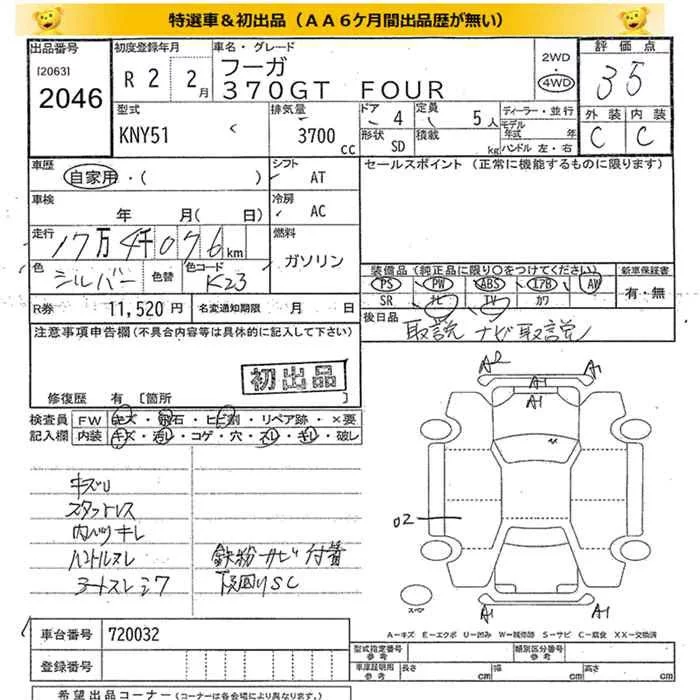 特選車＆初出品（ＡＡ６ケ月間出品歴が無い）
出品番号 [2063] 2046
初度登録年月 R 2 2月
車名・グレード フーガ
370GT FOUR
2WD 4WD
評価点 3.5
外装 内装
C C
型式 KNY51
排気量 3700 cc
ドア 4
形状 SD
定員 5人
積載 kg
ディーラー・並行
モデル年式 年
ハンドル 左・右
車歴 自家用・( )
シフト AT
セールスポイント（正常に機能するものに限ります）
車検 年 月( 日)
冷房 AC
走行 17万4千076km
燃料 ガソリン
色 シルバー 色替 色コード K23
装備品（純正品に限り○をつけてください）
新車保証書 有・無
PS PW ABS エアB AW
SR ナビ TV カワ
R券 11,520円 名変通知期限 月 日
後日品 取説 ナビ取説
注意事項申告欄(不具合内容等は具体的に記入して下さい)
初出品
修復歴 有 [箇所 ]
検査員記入欄
FW キズ・飛石・ヒビ割・リペア跡・×要
内装 キズ・汚レ・コゲ・穴・スレ・キレ・破レ
A2 A1 A1
A1
キズU
スタッドレス
内ハゲキレ
ハンドルスレ
シートスレシワ
鉄粉サビ付着
下廻りSC
02
スペア
A1 A1
A－キズ E－エクボ U－凹み W－補修跡 S－サビ C－腐食 XX－交換済
車台番号 720032
登録番号
型式指定番号 参考
類別区分番号 参考
車庫証明用 参考
長さ cm 幅 cm 高さ cm
希望出品コーナー（コーナーは各会場により異なります。）